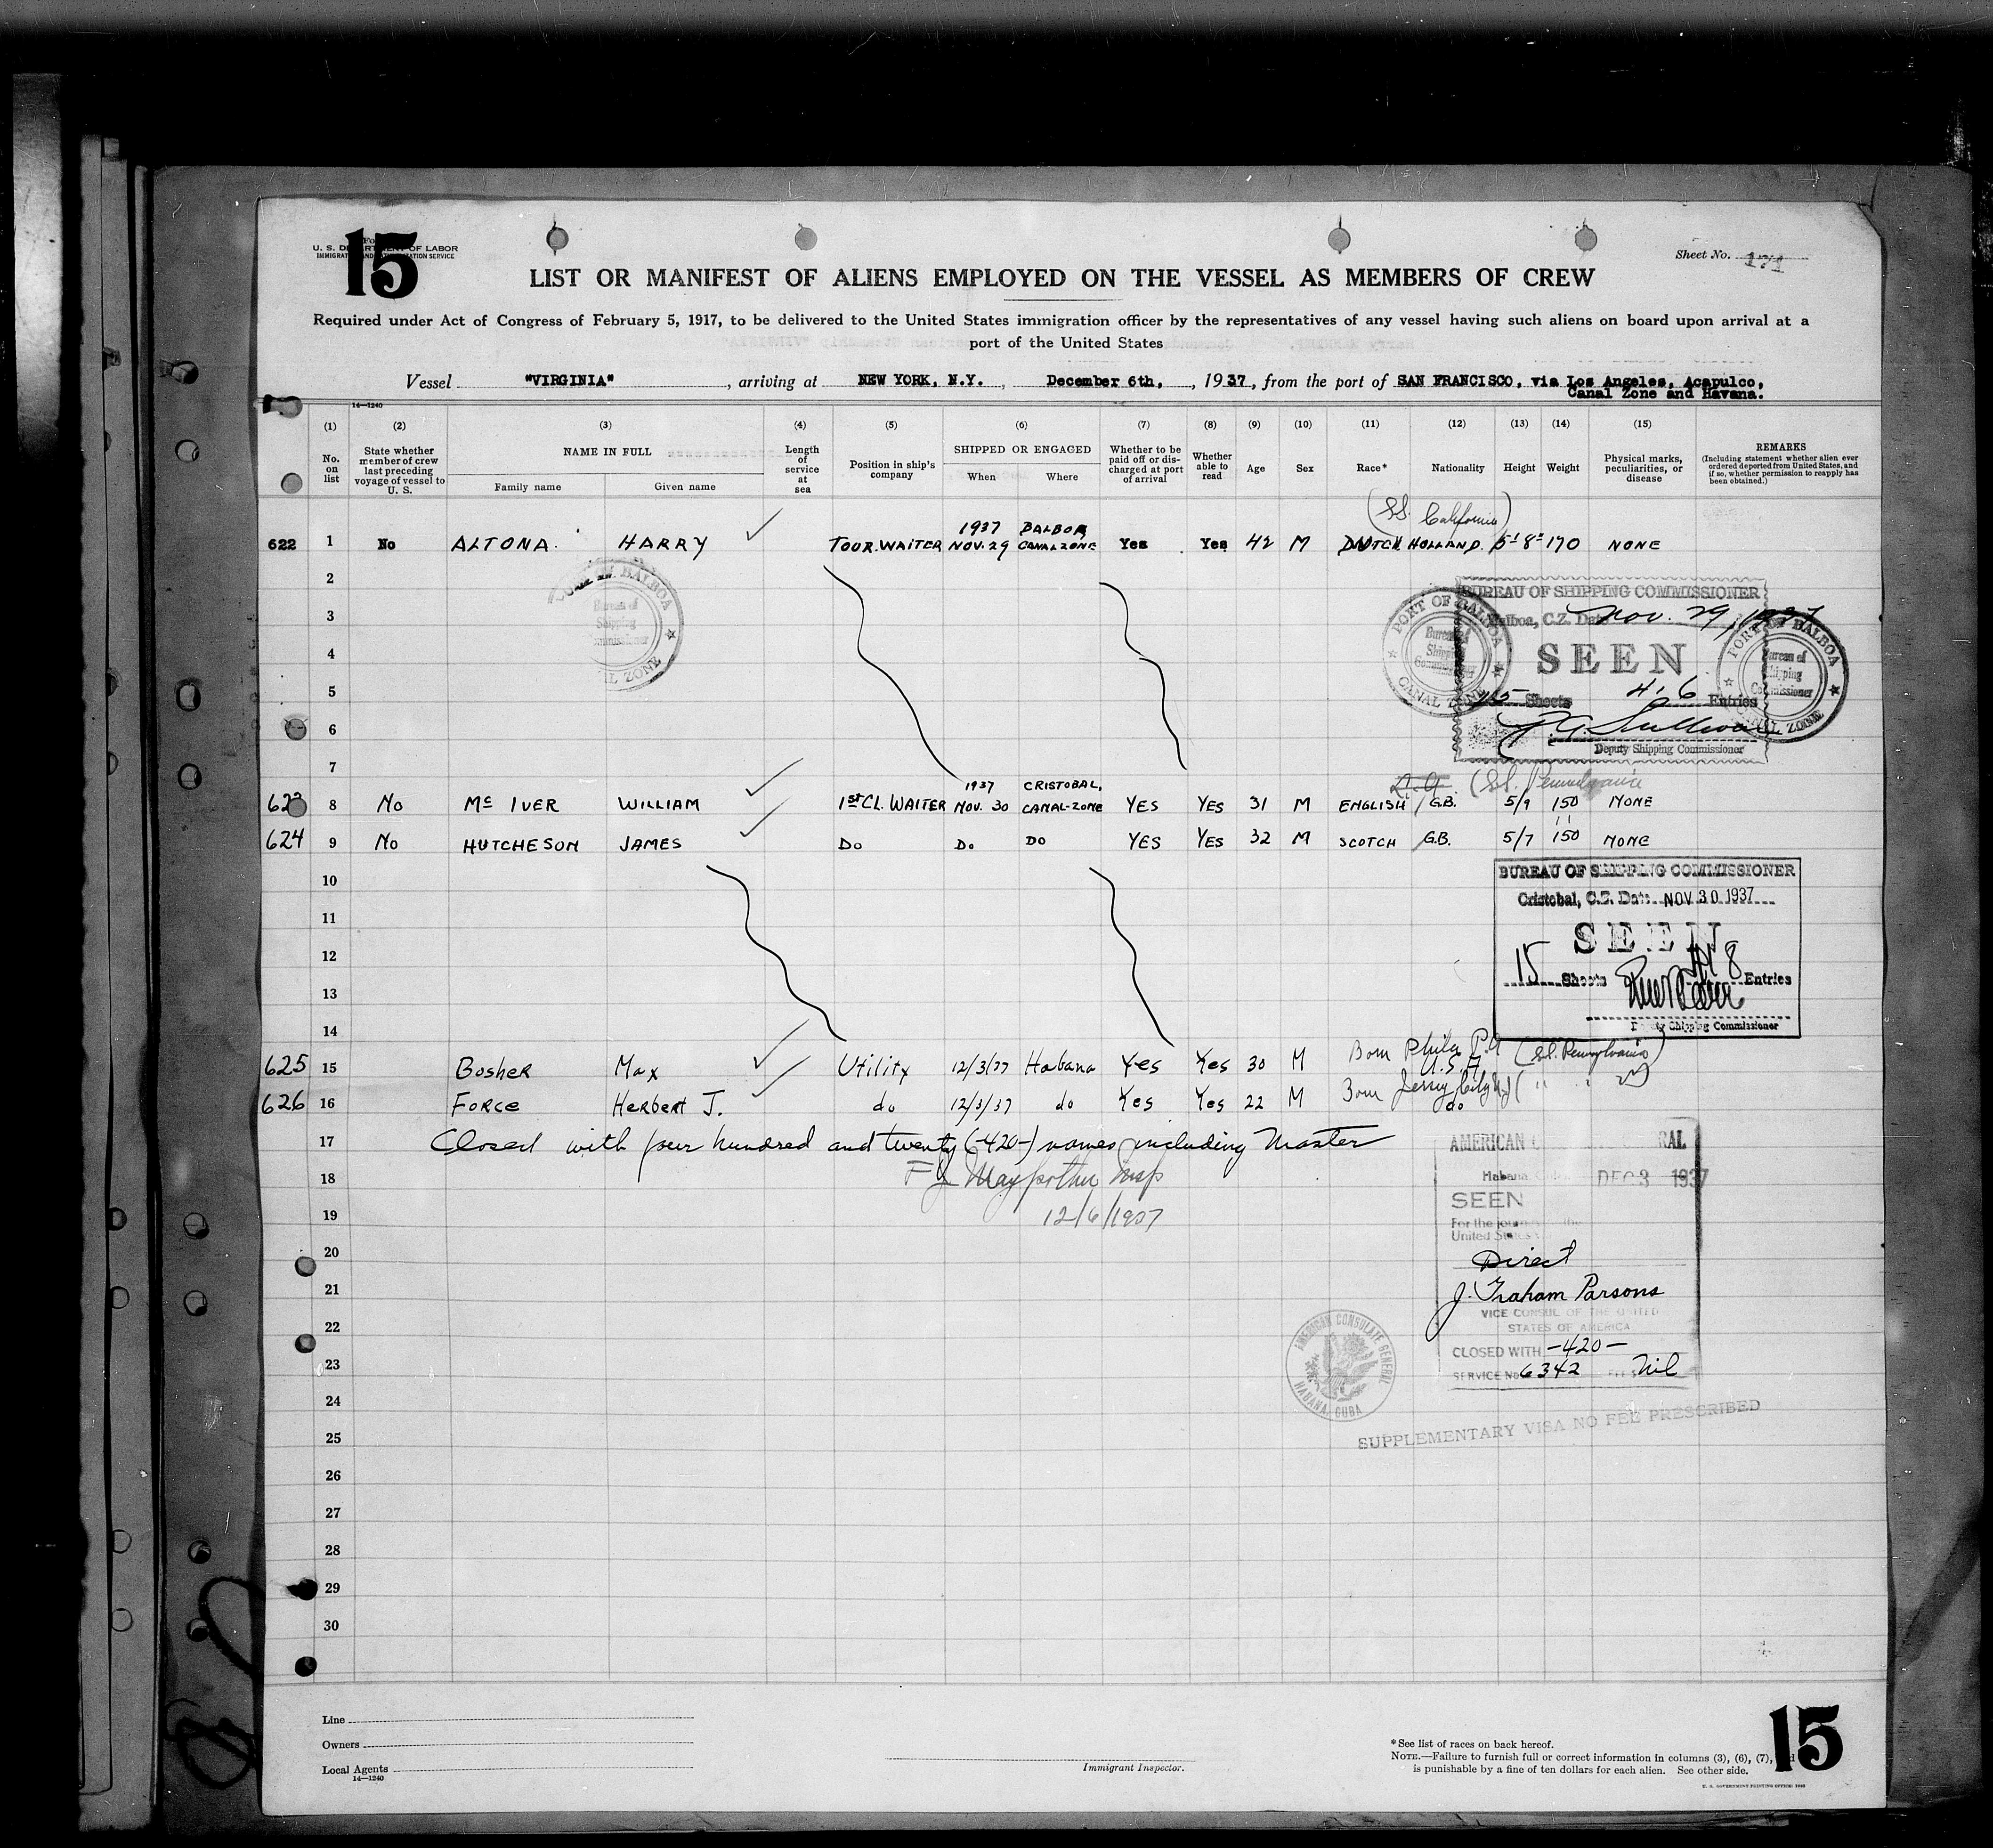 15
U. S. DEPARTMENT OF LABOR
IMMIGRATION AND NATURALIZATION SERVICE
Sheet No. 171
LIST OR MANIFEST OF ALIENS EMPLOYED ON THE VESSEL AS MEMBERS OF CREW
Required under Act of Congress of February 5, 1917, to be delivered to the United States immigration officer by the representatives of any vessel having such aliens on board upon arrival at a
port of the United States
Vessel "VIRGINIA", arriving at NEW YORK, N.Y., December 6th, , 1937, from the port of SAN FRANCISCO, via Los Angeles, Acapulco,
Canal Zone and Havana.
14—1240
(1) (2) (3) (4) (5) (6) (7) (8) (9) (10) (11) (12) (13) (14) (15)
No. on list
State whether member of crew last preceding voyage of vessel to U. S.
NAME IN FULL
Family name Given name
Length of service at sea
Position in ship's company
SHIPPED OR ENGAGED
When Where
Whether to be paid off or discharged at port of arrival
Whether able to read
Age
Sex
Race*
Nationality
Height
Weight
Physical marks, peculiarities, or disease
REMARKS
(Including statement whether alien ever ordered deported from United States, and if so, whether permission to reapply has been obtained.)
(SS. California)
622 1 No ALTONA. HARRY TOUR. WAITER 1937 NOV. 29 BALBOA CANAL ZONE Yes Yes 42 M DUTCH HOLLAND. 5'8" 170 NONE
2
3
4
5
6
7
PORT OF BALBOA
Bureau of
Shipping
Commissioner
CANAL ZONE
BUREAU OF SHIPPING COMMISSIONER
Balboa, C.Z. Date Nov. 29, 1937
SEEN
15 Sheets 416 Entries
Deputy Shipping Commissioner
PORT OF BALBOA
Bureau of
Shipping
Commissioner
CANAL ZONE
PORT OF BALBOA
Bureau of
Shipping
Commissioner
CANAL ZONE
(SS. Pennsylvania
623 8 No Mc IVER WILLIAM 1st CL. WAITER 1937 NOV. 30 CRISTOBAL, CANAL-ZONE YES YES 31 M ENGLISH G.B. 5/9 150 NONE
624 9 No HUTCHESON JAMES Do Do DO YES YES 32 M SCOTCH G.B. 5/7 150 NONE
10
11
12
13
14
BUREAU OF SHIPPING COMMISSIONER
Cristobal, C.Z. Date NOV 30 1937
SEEN
15 Sheets 418 Entries
Deputy Shipping Commissioner
625 15 Bosher Max Utility 12/3/37 Habana Yes Yes 30 M Born Phila P.A U.S.A (SS. Pennsylvania)
626 16 Force Herbert J. do 12/3/37 do Yes Yes 22 M Born Jersey City NJ do ( " "
17 Closed with four hundred and twenty (-420-) names including Master
18
12/6/1937
19
20
21
22
23
24
25
26
27
28
29
30
AMERICAN CONSULATE GENERAL
Habana, Cuba DEC 3 1937
SEEN
For the journey to the
United States
Direct
J. Graham Parsons
VICE CONSUL OF THE UNITED
STATES OF AMERICA
CLOSED WITH -420-
SERVICE NO 6342 FEES Nil
AMERICAN CONSULATE GENERAL
HABANA, CUBA
SUPPLEMENTARY VISA NO FEE PRESCRIBED
Line
Owners
Local Agents
14—1240
Immigrant Inspector.
* See list of races on back hereof.
NOTE.—Failure to furnish full or correct information in columns (3), (6), (7), and
is punishable by a fine of ten dollars for each alien. See other side.
15